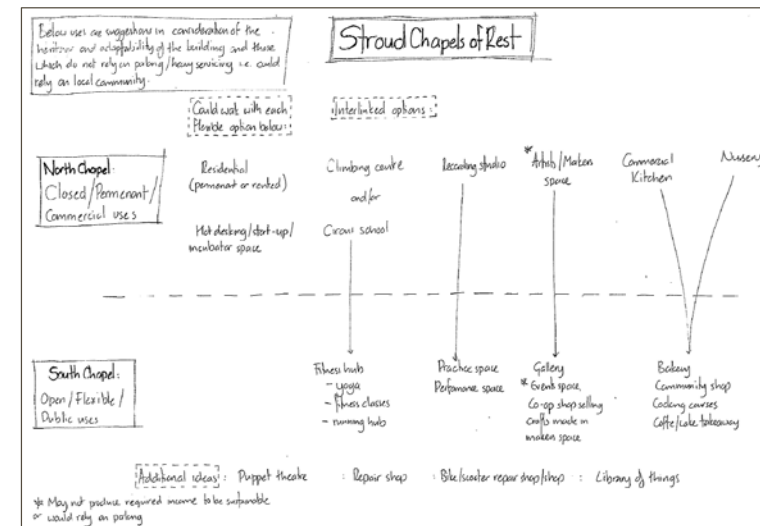 Below uses are suggestions in consideration of the
heritage and adaptability of the building and those
which do not rely on parking/heavy servicing i.e. could
rely on local community.
Stroud Chapels of Rest
Could work with each
flexible option below:
Interlinked options:
North Chapel:
Closed/Permenant/
Commercial uses
Residential
(permenant or rented)
Hot desking/start-up/
incubator space
Climbing centre
and/or
Circus school
Recording studio
* Artists/Makers
space
Commercial
Kitchen
Nursery
South Chapel:
Open/Flexible/
Public uses
Fitness hub
- yoga
- fitness classes
- running hub
Practice space
Performance space
Gallery
* Events space
Co-op shop selling
crafts made in
makers space
Bakery
Community shop
Cooking courses
Coffee/cake takeaway
Additional ideas: Puppet theatre : Repair shop : Bike/scooter repair shop/shop : Library of things
* May not produce required income to be sustainable
or would rely on parking